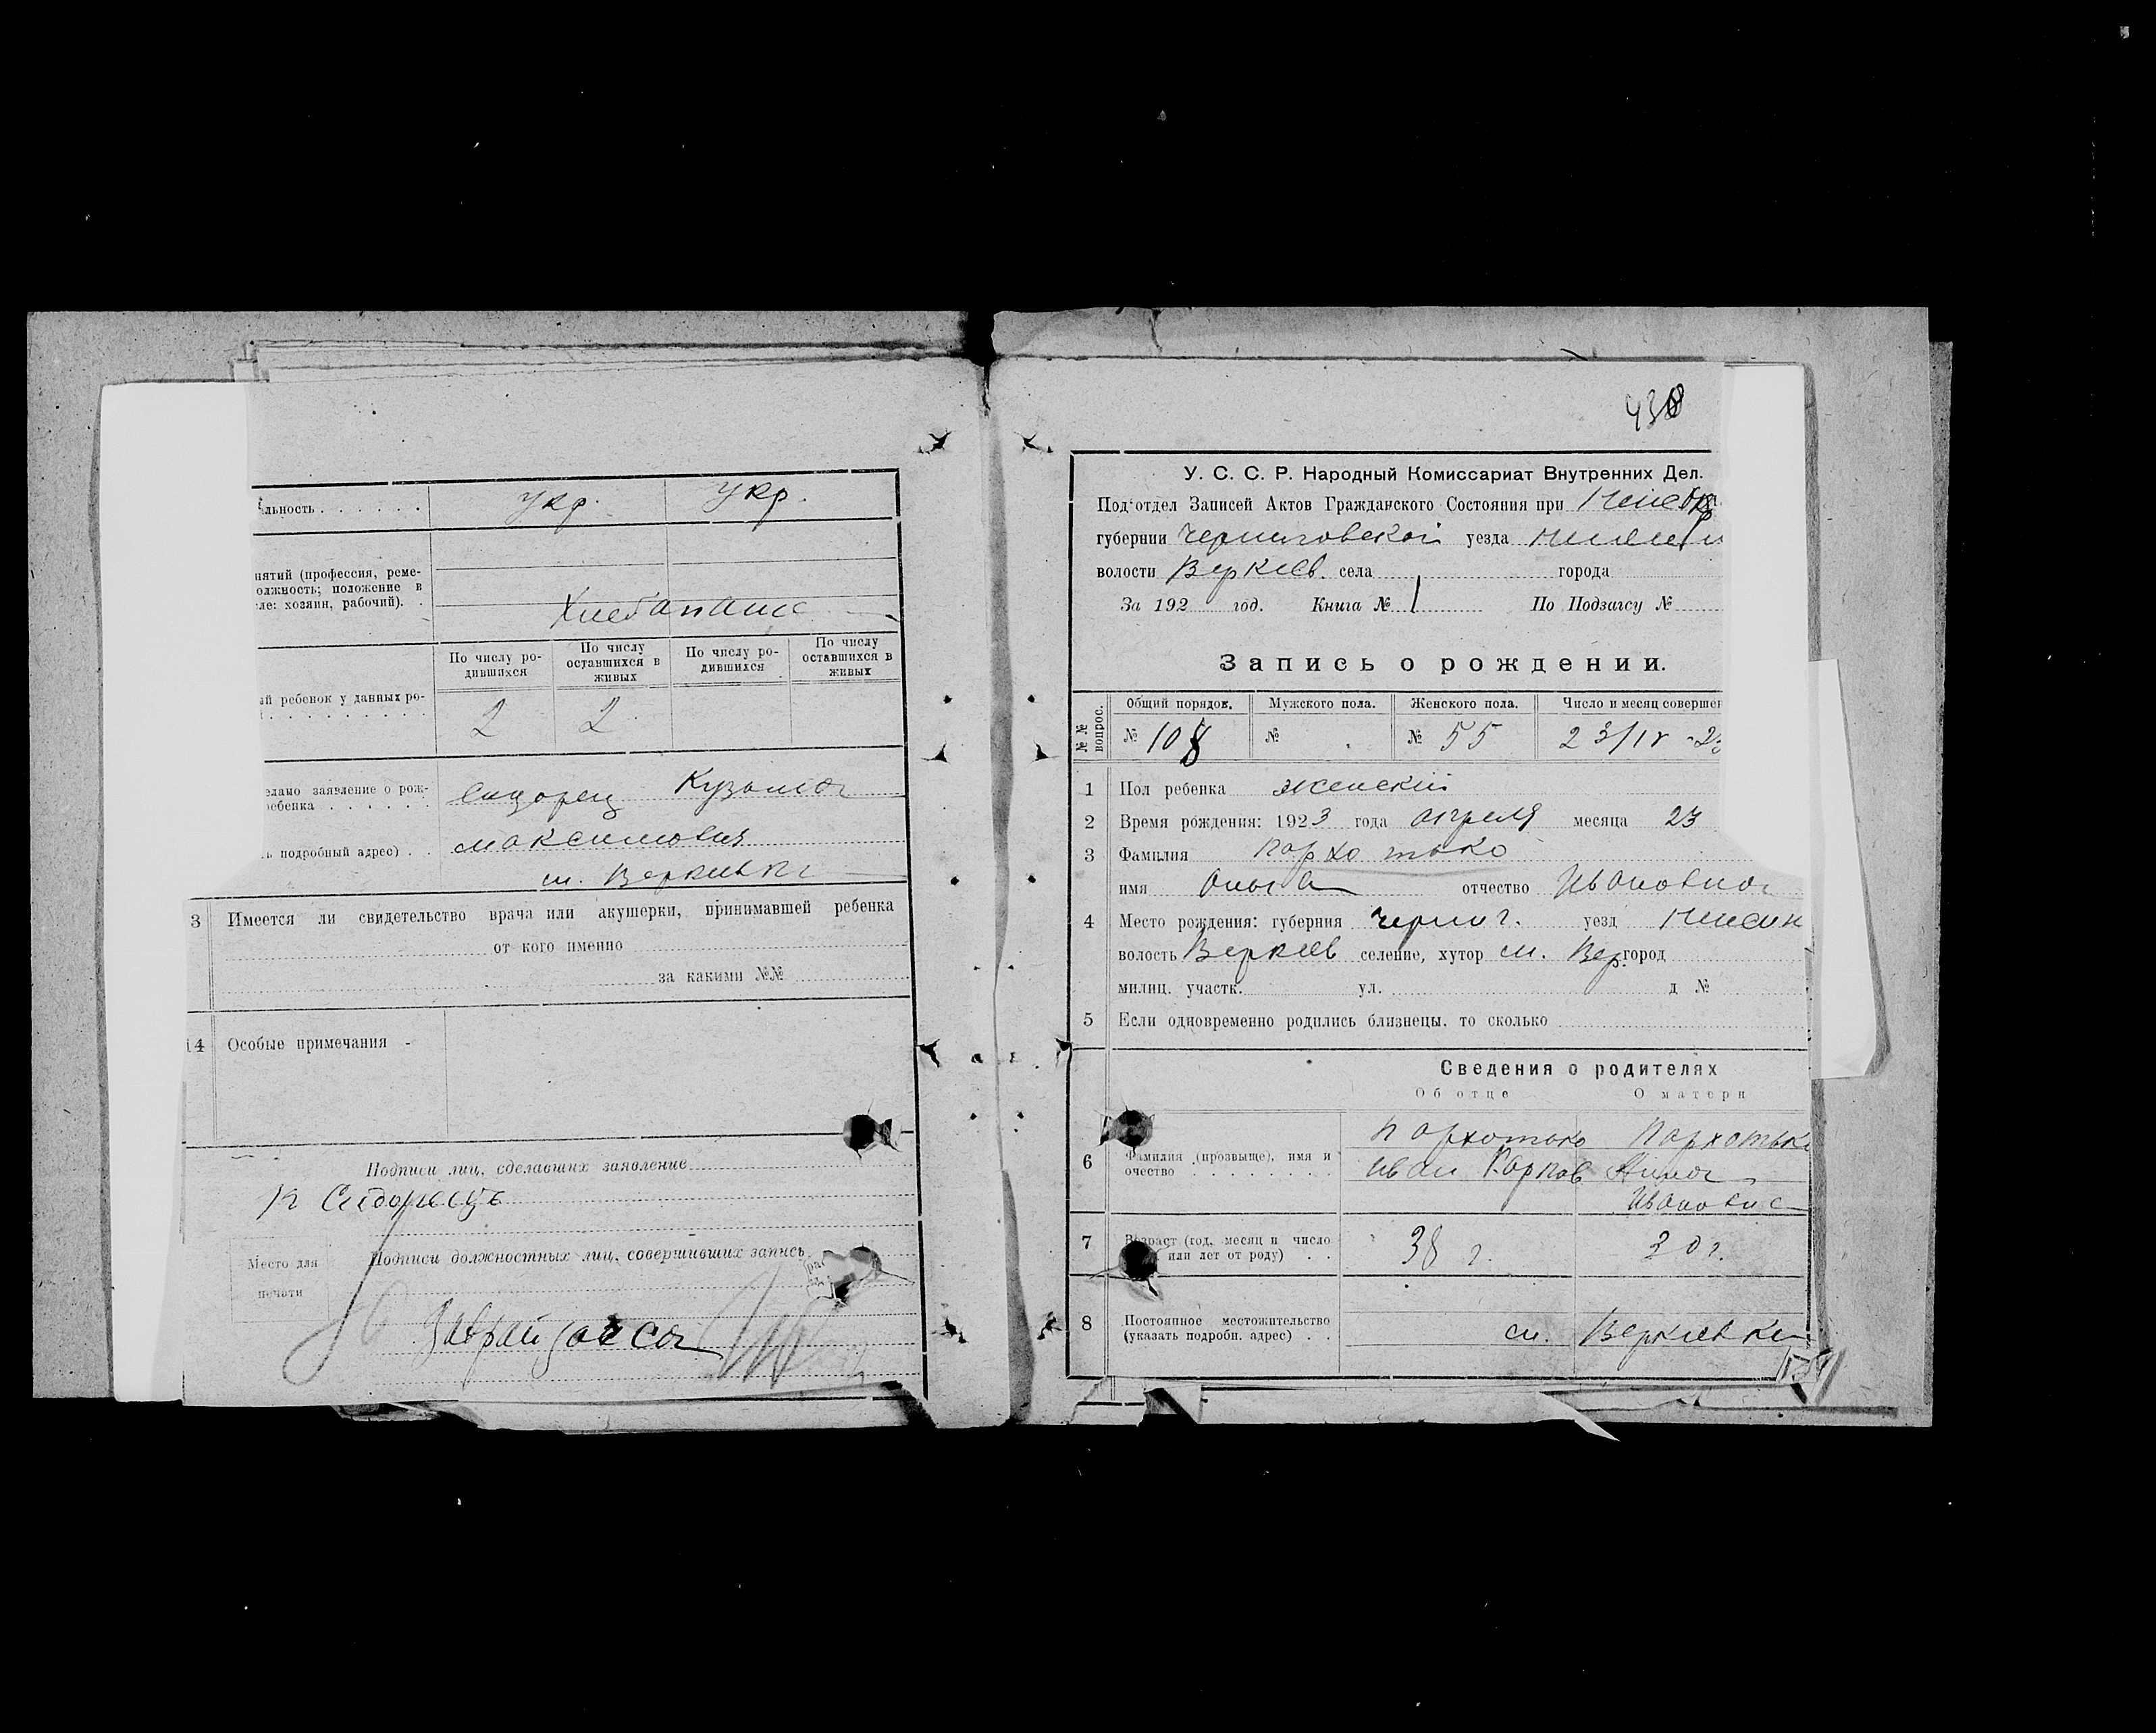 льность . . . . . . укр. укр.
нятий (профессия, реме-
олжность; положение в
ле: хозяин, рабочий). .
По числу ро-
дившихся
По числу
оставшихся в
живых
По числу ро-
дившихся
По числу
оставшихся в
живых
ребенок у данных ро-
2 2
елано заявление о рож-
ребенка . . . . . . Кузьма
подробный адрес) . .
м. Веркиевка
3 Имеется ли свидетельство врача или акушерки, принимавшей ребенка
от кого именно
за какими №№
14 Особые примечания -
Подписи лиц, сделавших заявление
К Сидорець
Подписи должностных лиц, совершивших запись
Место для
печати
438
У. С. С. Р. Народный Комиссариат Внутренних Дел.
Под'отдел Записей Актов Гражданского Состояния при
губернии Черниговской уезда
волости Веркиев. села города
За 192 год. Книга № 1 По Подзагсу №
Запись о рождении.
№№ вопрос.
Общий порядок. Мужского пола. Женского пола. Число и месяц совершен
№ 108 № № 55 23/IV -23
1 Пол ребенка женский
2 Время рождения: 1923 года апреля месяца 23
3 Фамилия Пархотько
имя Ольга отчество Ивановна
4 Место рождения: губерния Черниг. уезд Нежин
волость Веркиев селение, хутор м. Вер. город
милиц. участк. ул. д №
5 Если одновременно родились близнецы, то сколько
Сведения о родителях
Об отце О матери
Пархотько Пархотько
6 Фамилия (прозвыще), имя и
очество . . . . . . . Иван Карпов Анна
Ивановна
7 Возраст (год, месяц и число
или лет от роду) . . 38 г. 30 г.
8 Постоянное местожительство
(указать подробн. адрес) . . м. Веркиевка